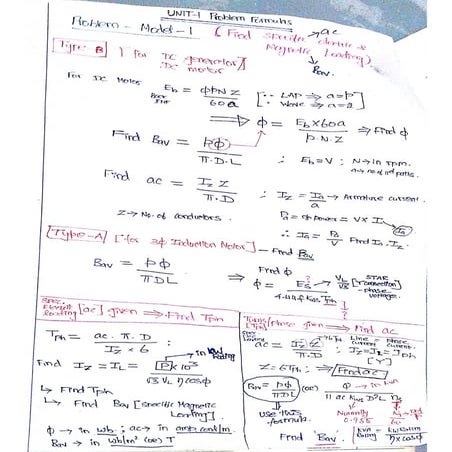 UNIT-1 Problem Formulas
Problem - Model-1 ( Find specific electric & → ac
Magnetic Loading )
↓
Bav.
Type B } for DC generator //
DC motor
For DC Motor Eb = ΦPNZ / 60a [∵ LAP ⇒ a=P
Wave ⇒ a=2]
⟹ Φ = Eb×60a / P.N.Z ⇒ Find Φ
Find Bav = PΦ / π.D.L ∴ Eb=V ; N→in rpm.
a→no. of paths.
Find ac = Iz Z / π.D ∴ Iz = Ia / a → Armature current.
Z → No. of conductors. Pa = Power = V× Ia
∴ Ia = Pa / V Find Ia . Iz.
Type-A [ for 3Φ Induction Motor ] - Find Bav
Bav = PΦ / πDL ⇒ Find Φ
Φ = Es / 4.44 f Kws Tph → VL / √3 [ STAR connection ]
phase voltage.
Spec. Electric Loading [ac] given ⟹ Find Tph
Tph = ac . π . D / Iz × 6
Find Iz = IL = P × 10³ / √3 VL η cosΦ → in KW Rating
↳ Find Tph
↳ Find Bav [Specific Magnetic Loading].
Φ → in wb ; ac → in amp.cond/m.
Bav → in wb/m² (or) T
Turns/phase given ⟹ Find ac
[Tph]
ac = Iz Z / π.D
Line = Phase
current current.
Iz = IL = Iph
[Y]
Z = 6Tph ⇒ Find ac
Bav = PΦ / πDL (or) Q → in kva / 11 ac Kws D²L ns
use this formula.
Normally 0.955
Find Bav
KVA Rating = kw Rating / η × cosΦ